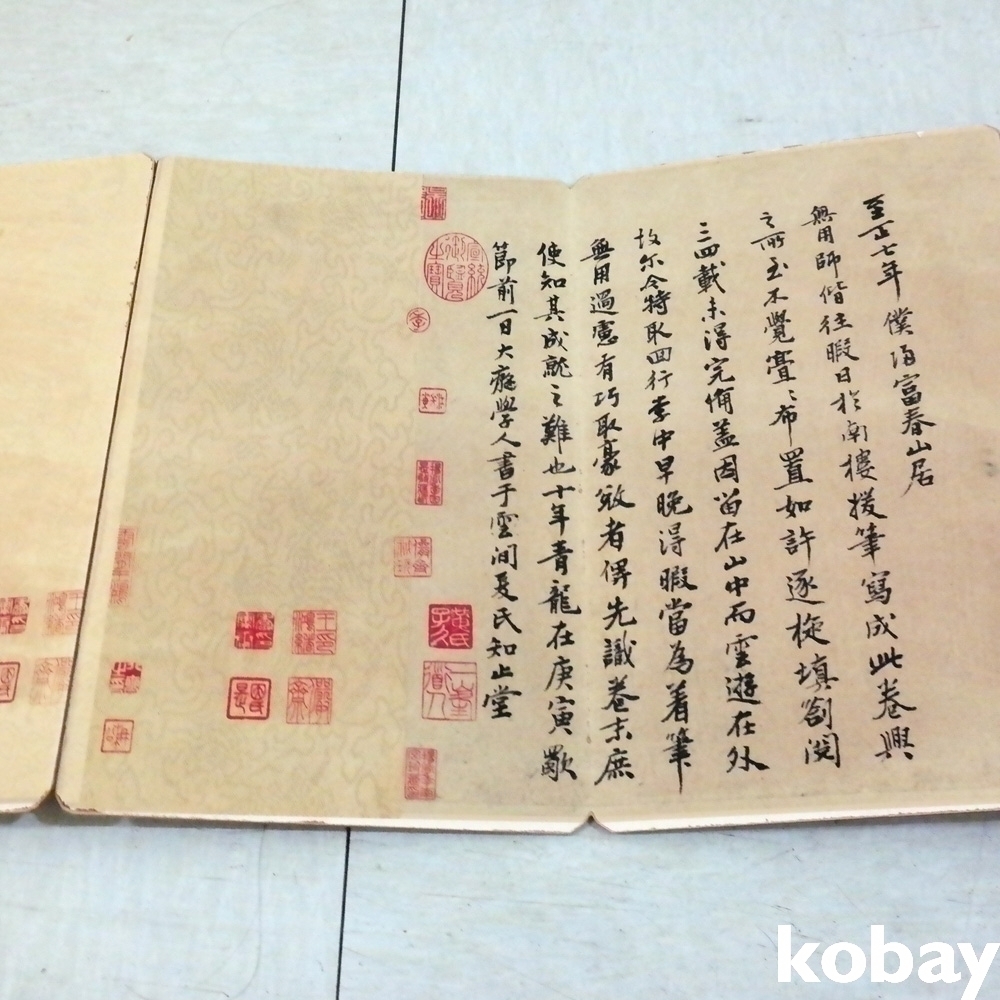 至正七年僕歸富春山居
無用師偕往暇日於南樓援筆寫成此卷興
之所至不覺亹〻布置如許逐旋填劄閱
三四載未得完備蓋因留在山中而雲遊在外
故尔今特取回行李中早晚得暇當為着筆
無用過慮有巧取豪敚者俾先識卷末庶
使知其成就之難也十年青龍在庚寅歜
節前一日大癡學人書于雲間夏氏知止堂
宣統御覽之寶
kobay